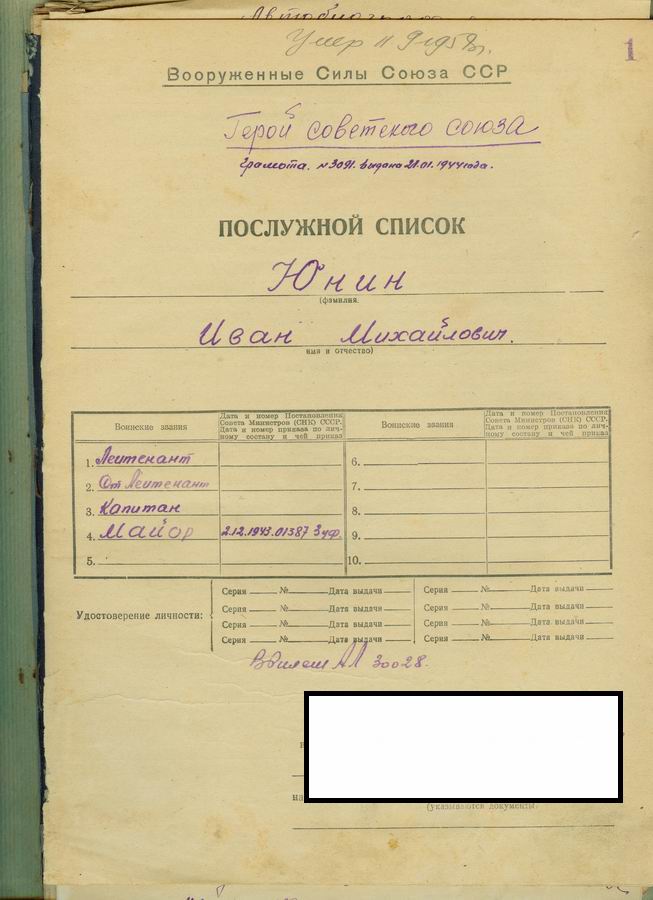 Умер 11 9 1958г.
1
Вооруженные Силы Союза ССР
Герой советского союза
грамота. №3091. выдана 21.01.1944 года.
ПОСЛУЖНОЙ СПИСОК
Юнин
(фамилия.
Иван Михайлович.
имя и отчество)
Воинские звания
Дата и номер Постановления Совета Министров (СНК) СССР.
Дата и номер приказа по личному составу и чей приказ
Воинские звания
Дата и номер Постановления Совета Министров (СНК) СССР.
Дата и номер приказа по личному составу и чей приказ
1. Лейтенант 6.
2. Ст Лейтенант 7.
3. Капитан 8.
4. Майор 2.12.1943. 01387 3 уф. 9.
5. 10.
Удостоверение личности:
Серия № Дата выдачи Серия № Дата выдачи
Серия № Дата выдачи Серия № Дата выдачи
Серия № Дата выдачи Серия № Дата выдачи
Серия № Дата выдачи Серия № Дата выдачи
30028.
(указываются документы.